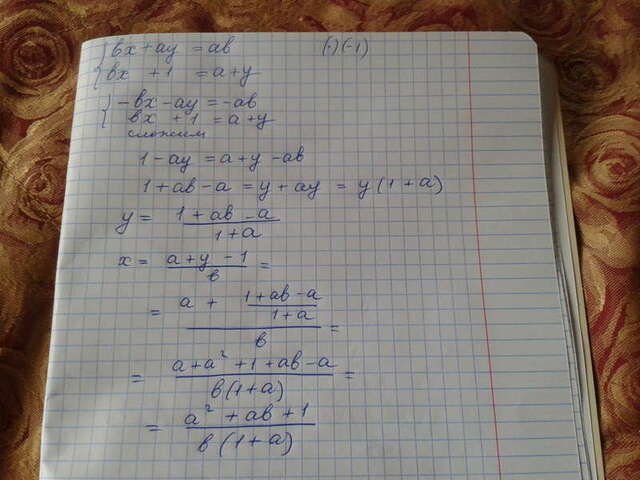 { вx + ay = ab (·)(-1)
{ вx + 1 = a + y
{ -вx - ay = -ab
{ вx + 1 = a + y
сложим
1 - ay = a + y - ab
1 + ab - a = y + ay = y(1 + a)
y = (1 + ab - a)/(1 + a)
x = (a + y - 1)/в =
= (a + (1 + ab - a)/(1 + a))/в =
= (a + a² + 1 + ab - a)/(в(1 + a)) =
= (a² + ab + 1)/(в(1 + a))